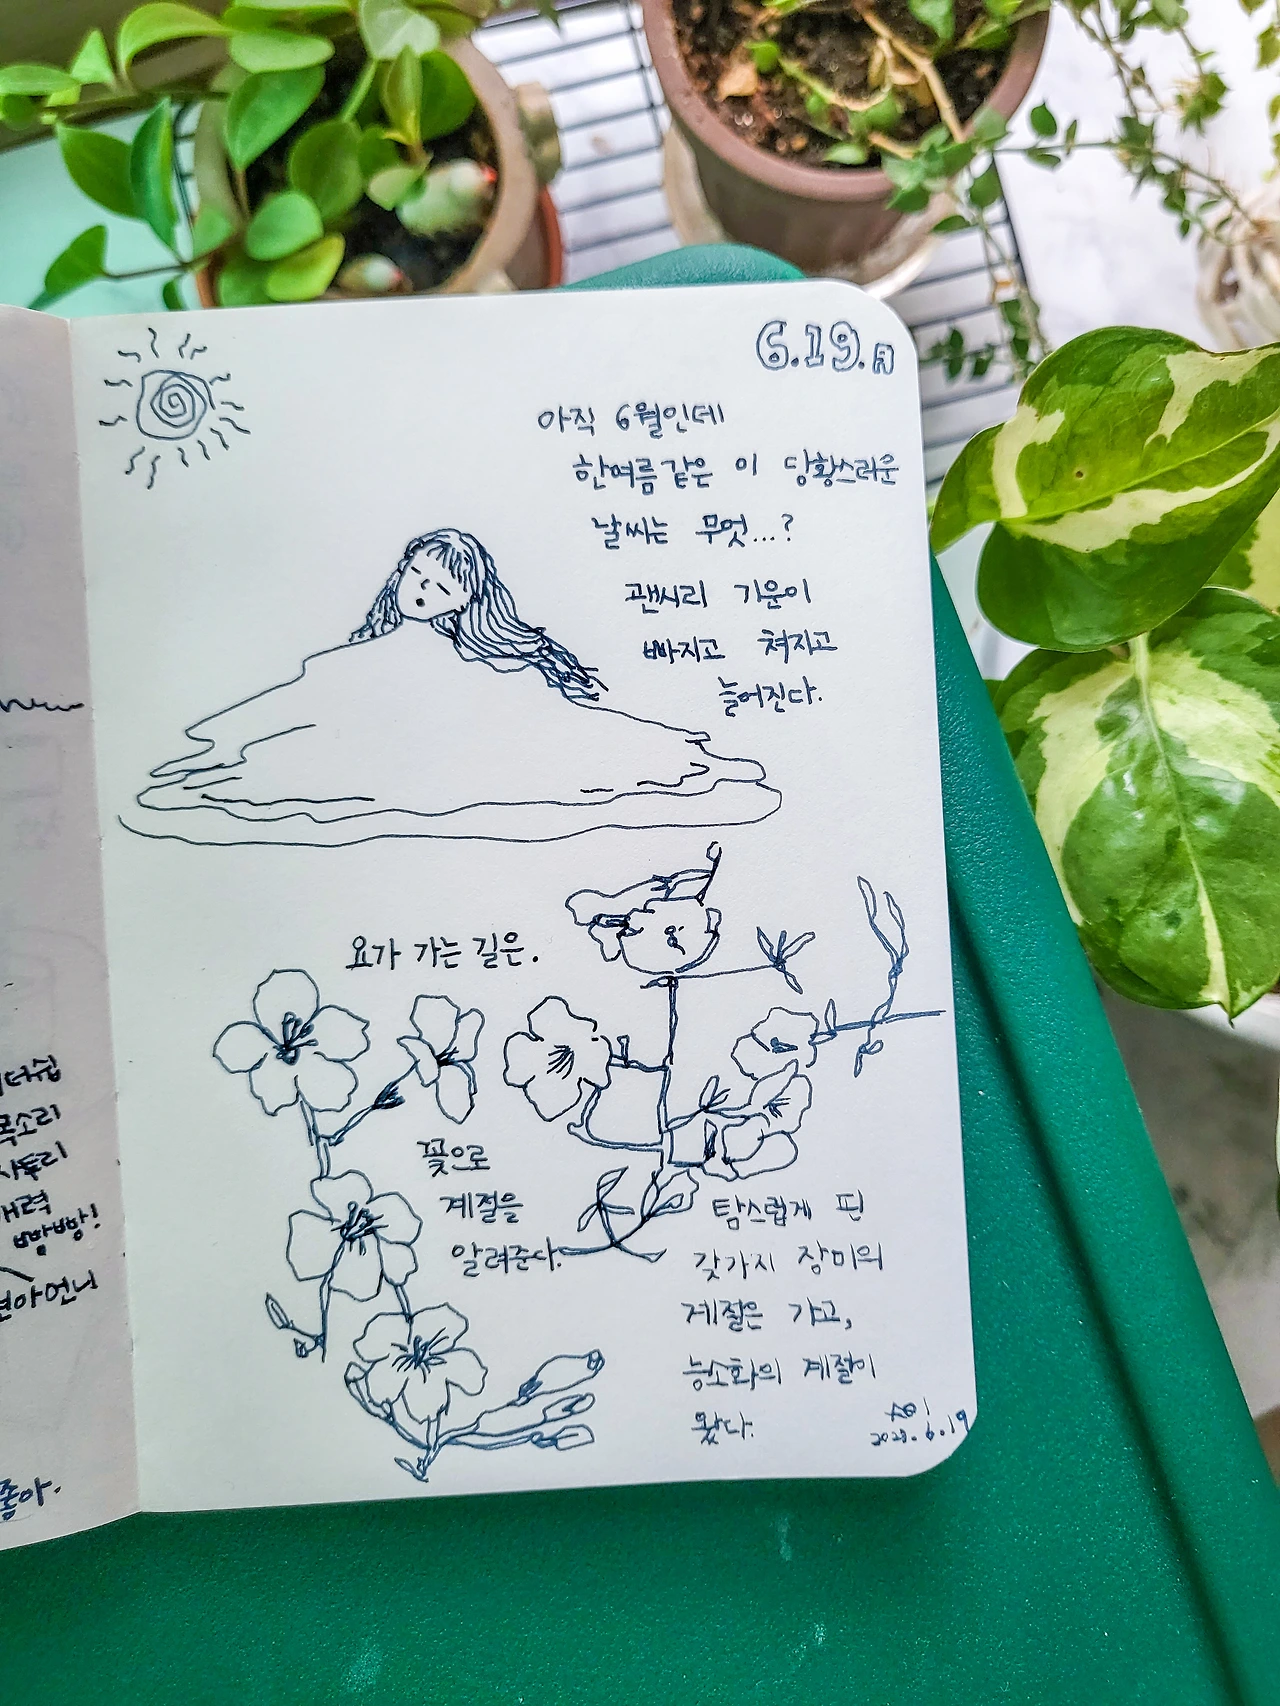 6.19.月
아직 6월인데
한여름 같은 이 당황스러운
날씨는 무엇...?
괜시리 기운이
빠지고 쳐지고
늘어진다.
요가 가는 길은.
꽃으로
계절을
알려준다.
탐스럽게 핀
갖가지 장미의
계절은 가고,
능소화의 계절이
왔다.
2023.6.19
더쉽
목소리
력
빵빵!
언니
좋아.